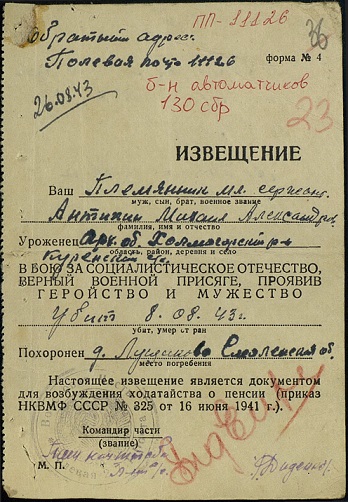 ПП-11126
Обратный адрес.
Полевая почта 11126
форма № 4
26.08.43
б-н автоматчиков
130 сбр
36
23
ИЗВЕЩЕНИЕ
Ваш Племянник мл. сержант
муж, сын, брат, военное звание
Антихин Михаил Александров
фамилия, имя и отчество
Уроженец Арх. об. Холмогорский р-н
область, район, деревня и село
В БОЮ ЗА СОЦИАЛИСТИЧЕСКОЕ ОТЕЧЕСТВО,
ВЕРНЫЙ ВОЕННОЙ ПРИСЯГЕ, ПРОЯВИВ
ГЕРОЙСТВО И МУЖЕСТВО
Убит 8.08.43 г.
убит, умер от ран
Похоронен д. Смоленская об.
место погребения
Настоящее извещение является документом
для возбуждения ходатайства о пенсии (приказ
НКВМФ СССР № 325 от 16 июня 1941 г.).
Командир части
(звание)
М. П.